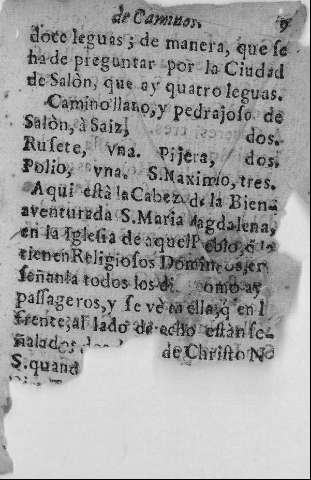 de Caminos. 9
doce leguas; de manera, que se
ha de preguntar por la Ciudad
de Salòn, que ay quatro leguas.
Camino llano, y pedrajoso de
Salòn, à Saiz, dos.
Rusete, vna. Pijera, dos.
Polio, vna. S. Naximio, tres.
Aqui està la Cabeza de la Bien-
aventurada S. Maria Magdalena,
en la Iglesia de aquel P eblo, q la
tienen Religiosos Dominicos, en
señanla todos los di omo ay
passageros, y se vè en ella, q en l
frente, al lado de echo estàn se-
ñalados de Christo N
S. quand